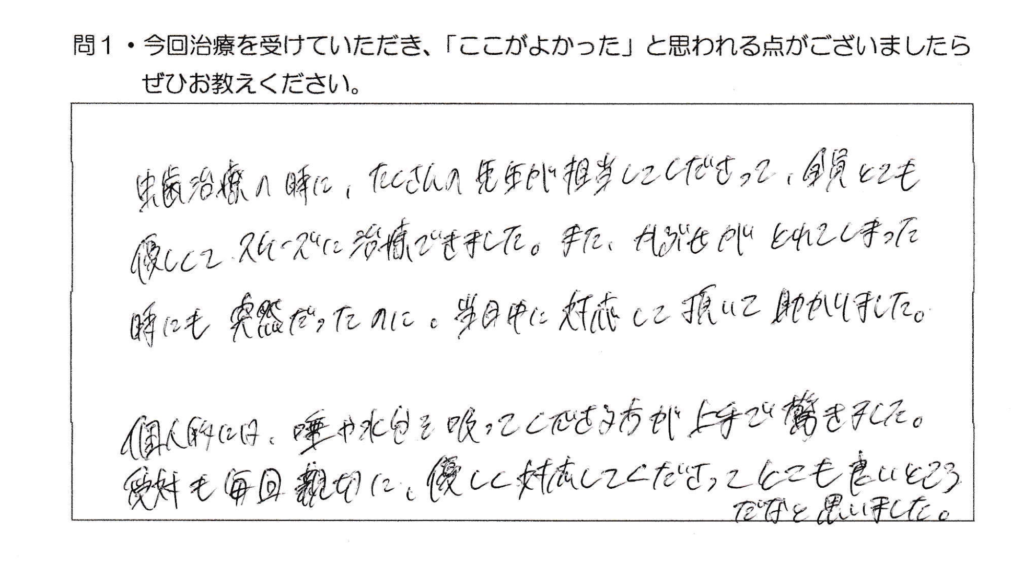 問1・今回治療を受けていただき、「ここがよかった」と思われる点がございましたら
ぜひお教えください。
虫歯治療の時に、たくさんの先生が担当してくださって、全員とても
優しくて スムーズに治療できました。また、かぶせが とれてしまった
時にも 突然だったのに。当日中に 対応して 頂いて 助かりました。
個人的には、唾や水分を吸ってくださる方が 上手で 驚きました。
受対も 毎回 親切に、優しく 対応してくださって とても 良いところ
だなと 思いました。